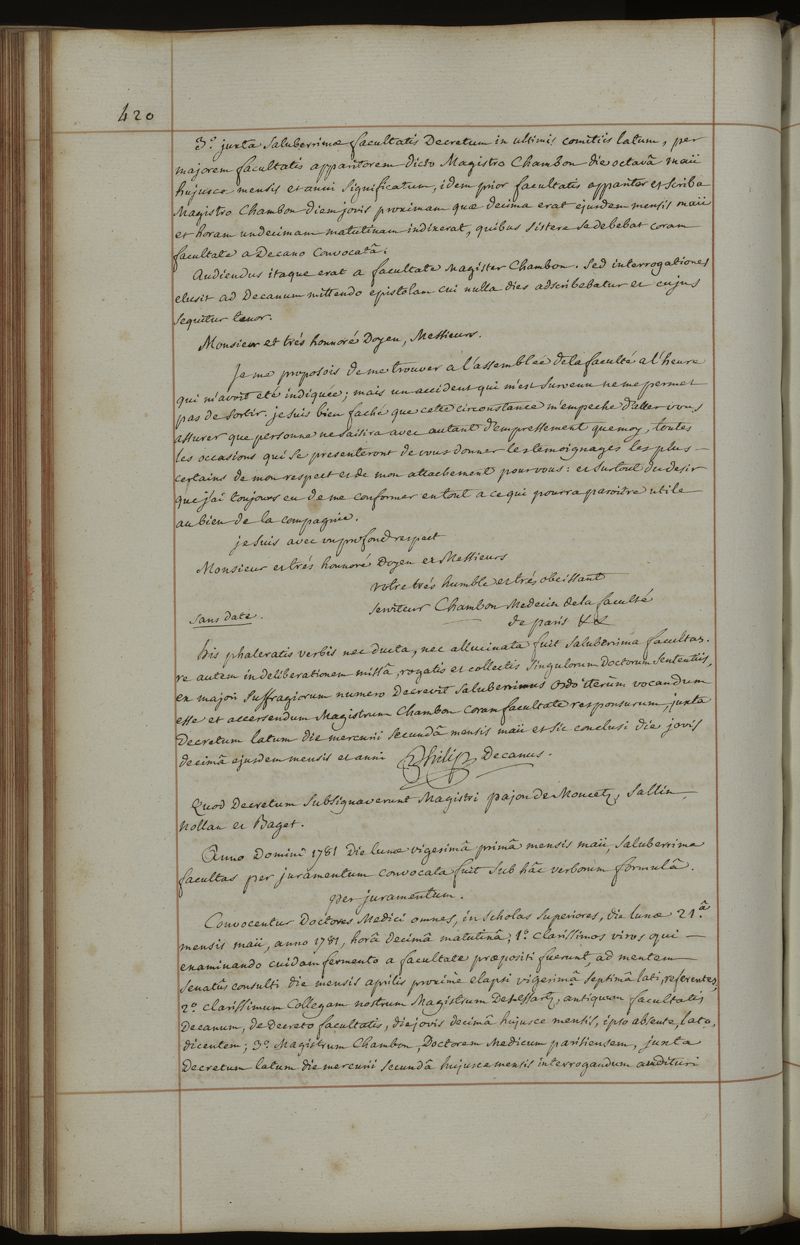 420
3.° juxta Saluberrimæ facultatis Decretum in ultimis comitiis latum, per
majorem facultatis apparitorem dicto Magistro Chambon die octavâ maii
hujusce mensis et anni significatum, idem prior facultatis apparitor et scriba
Magistro Chambon diem jovis proximam quæ decima erat ejusdem mensis maii
et horam undecimam matutinam indixerat, quibus sistere se debebat coram
facultate a Decano Convocatâ.
Audiendus itaque erat a facultate Magister Chambon. Sed interrogationes
elusit ad Decanum mittendo epistolam cui nulla dies adscribebatur et cujus
sequitur tenor.
Monsieur et trés honnoré Doyen, Messieurs.
Je me proposois de me trouver a l'assemblée de la faculté a l'heure
qui m'avoit eté indiquée; mais un accident qui m'est survenu ne me permet
pas de sortir. je suis bien faché que cette circonstance m'empeche d'aller vous
assurer que personne ne saisira avec autant d'empressement que moy, toutes
les occasions qui se presenteront de vous donner les temoignages les plus
certains de mon respect et de mon attachement pour vous: et surtout du desir
que j'ai toujours eu de me conformer en tout a ce qui pourra paroitre utile
au bien de la compagnie.
je suis avec un profond respect
Monsieur et trés honnoré Doyen et Messieurs
votre trés humble et trés obeissant
Sans date. Serviteur Chambon Medecin de la faculté
de paris &&
His phaleratis verbis nec ducta, nec allucinata fuit Saluberrima facultas.
re autem in deliberationem missâ, rogatis et collectis singulorum Doctorum Sententiis,
ex majori suffragiorum numero Decrevit Saluberrimus Ordo iterùm vocandum
esse et accersendum Magistrum Chambon coram facultate responsurum, juxta
Decretum latum die mercurii secundâ mensis maii et sic conclusi die jovis
decimâ ejusdem mensis et anni Philip Decanus.
Quod Decretum Subsignaverunt Magistri pajon de Moncets, Sallin,
Nollan et Baget.
Anno Domini 1781 Die lunæ vigesimâ primâ mensis maii, Saluberrima
facultas per juramentum convocata fuit Sub hâc verborum formulâ.
per juramentum.
Convocentur Doctores Medici omnes, in Scholas Superiores, die lunæ 21.â
mensis maii, anno 1781, horâ decimâ matutinâ; 1.° clarissimos viros qui
examinando cuidam fermento a facultate præpositi fuerunt, ad mentem
Senatûs consulti die mensis aprilis proximè elapsi vigesimâ septimâ lati, referentes,
2.° clarissimum Collegam nostrum Magistrum Dessessartz, antiquum facultatis
Decanum, de Decreto facultatis, die jovis decimâ hujusce mensis, ipso absente, lato,
dicentem; 3.° Magistrum Chambon, Doctorem Medicum parisiensem, juxta
Decretum latum die mercurii secundâ hujusce mensis interrogandum audituri